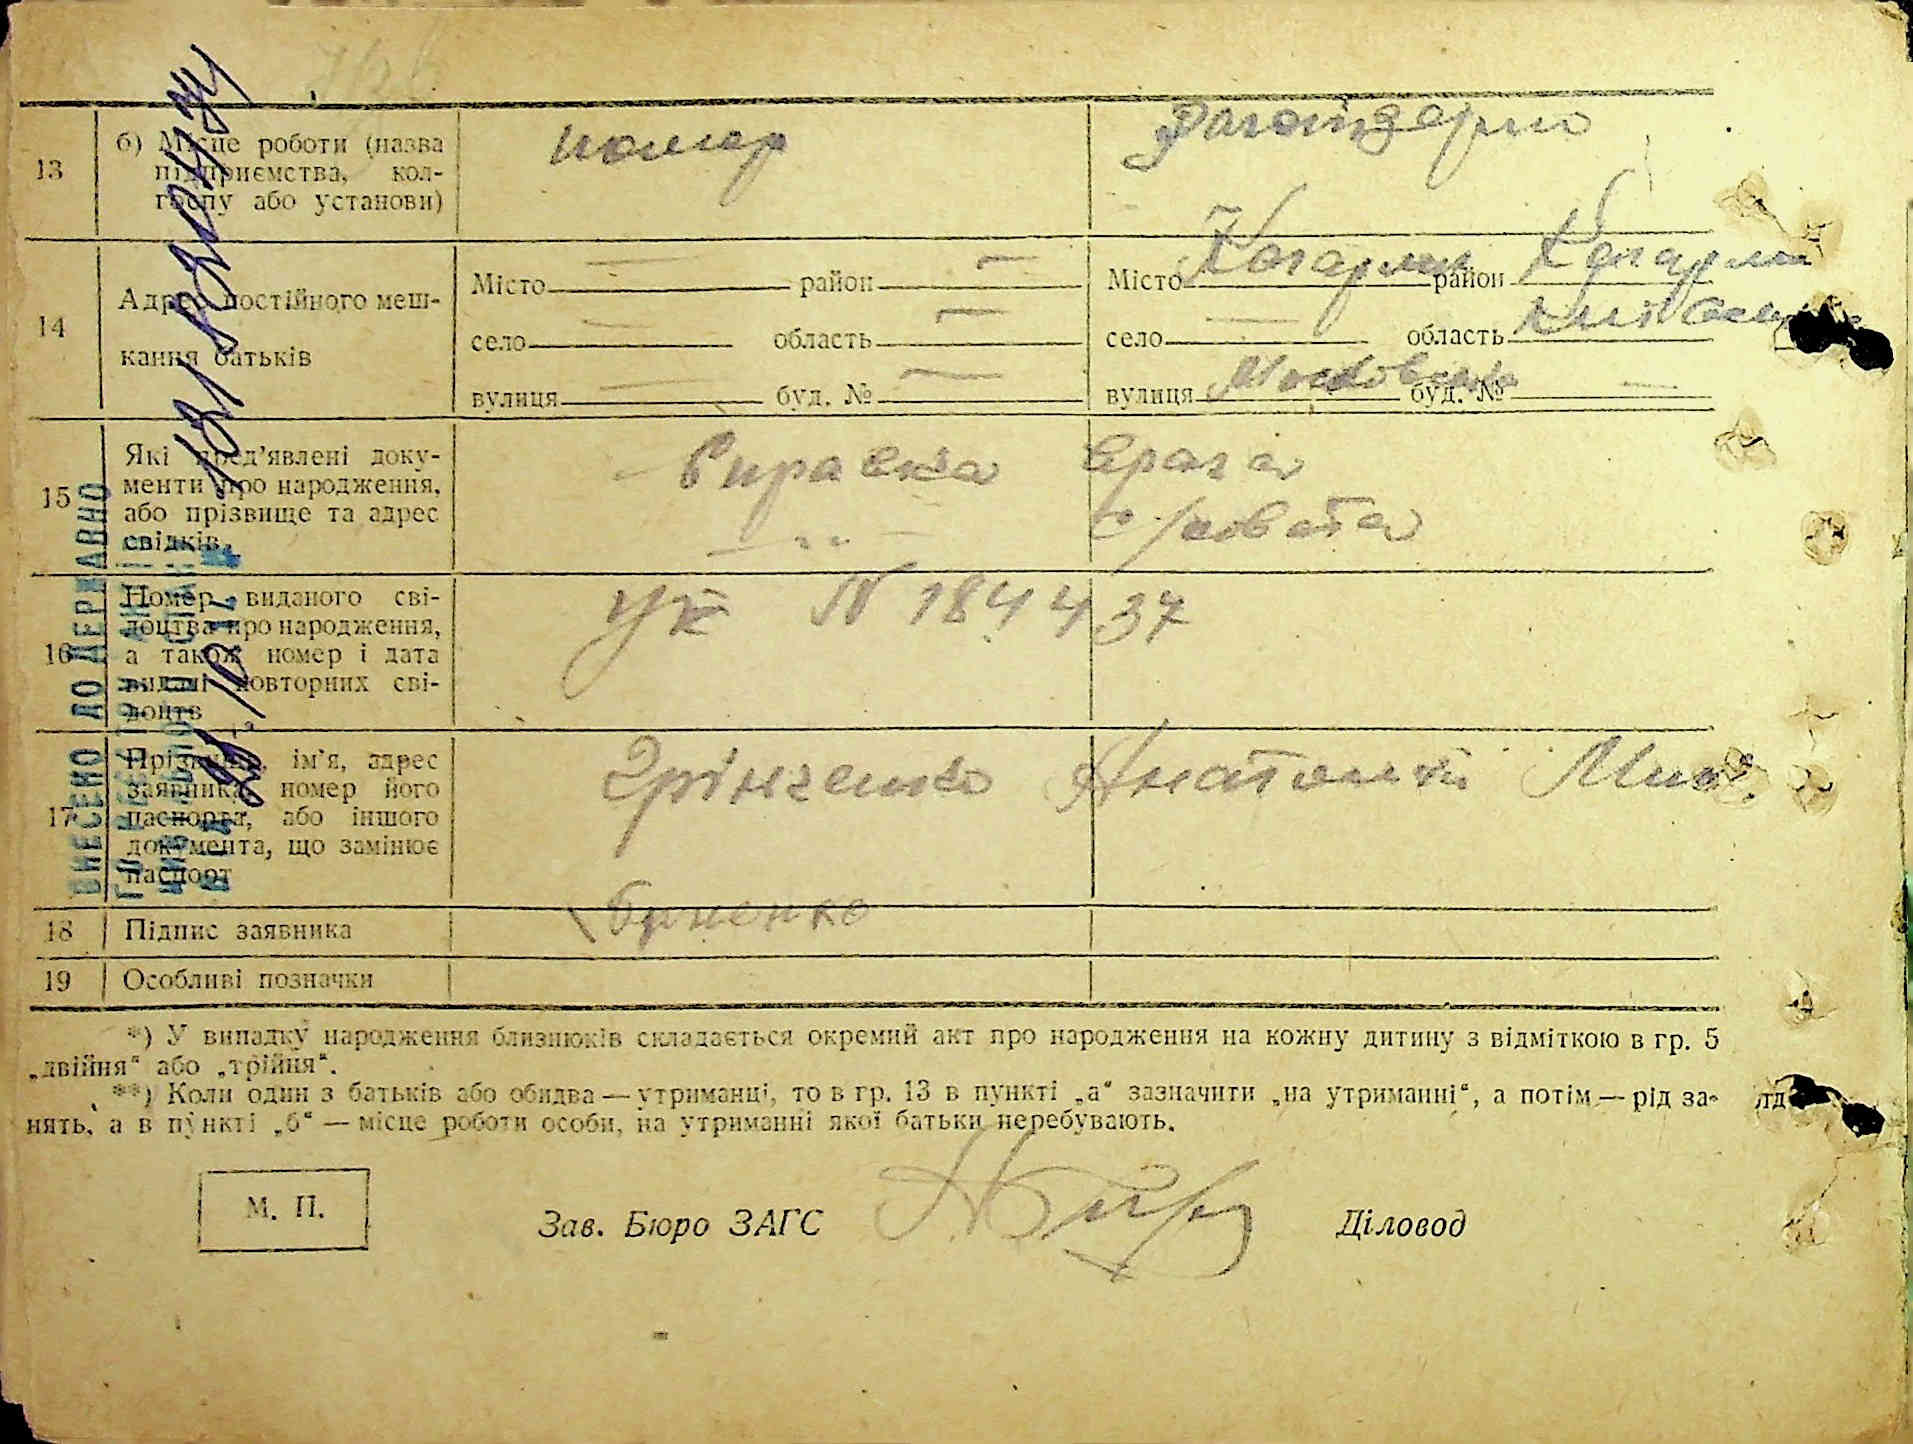 13 б) Місце роботи (назва підприємства, колгоспу або установи) помер
14 Адрес постійного мешкання батьків
Місто район
село область
вулиця буд. №
Місто Кагарлик район Кагарлик
село область Київська
вулиця Московська буд. №
15 Які пред'явлені документи про народження, або прізвище та адрес свідків.
Справка врача
с/совета
16 Номер виданого свідоцтва про народження, а також номер і дата видачі повторних свідоцтв
УК N 184437
17 Прізвище, ім'я, адрес заявника, номер його паспорта, або іншого документа, що замінює паспорт
Грінченко Анатолій
18 Підпис заявника
19 Особливі позначки
*) У випадку народження близнюків складається окремий акт про народження на кожну дитину з відміткою в гр. 5
„двійня“ або „трійня“.
**) Коли один з батьків або обидва — утриманці, то в гр. 13 в пункті „а“ зазначити „на утриманні“, а потім — рід за-
нять, а в пункті „б“ — місце роботи особи, на утриманні якої батьки перебувають.
М. П.
Зав. Бюро ЗАГС
Діловод
ВНЕСЕНО ДО ДЕРЖАВНО